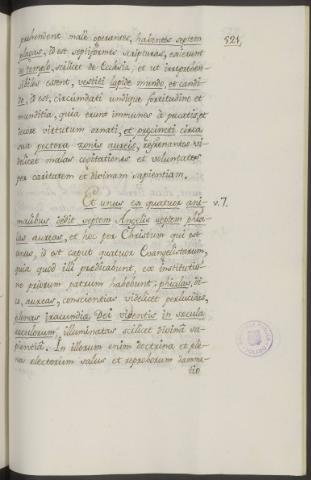 prehendent malè operantes, habentes septem
plagas, id est septiformes scripturas, exierunt
de templo, scilicet de Ecclesia; et ut irreprehen-
sibiles essent, vestiti lapide mundo, et candi-
do, id est, circumdati undique fortitudine et
munditia, quia tunc immunes à peccatis, et
decore virtutum ornati, et præcincti circa
sua pectora zonis aureis, refrenantes vi-
delicet malas cogitationes et voluntates
per caritatem et divinam sapientiam.
Et unus ex quatuor ani-
malibus dedit septem Angelis septem phia-
las aureas, et hoc per Christum qui est
unus, id est caput quatuor Evangelistarum,
quia quod illi prædicabunt, ex institutio-
ne priorum patrum habebunt; phialas, di-
co, aureas, conscientias videlicet perlucidas,
plenas iracundia Dei viventis in secula
seculorum, illuminatas scilicet divina sa-
pientia. In illorum enim doctrina et ple-
na electorum salus et reproborum damna-
tio
521
v. 7.